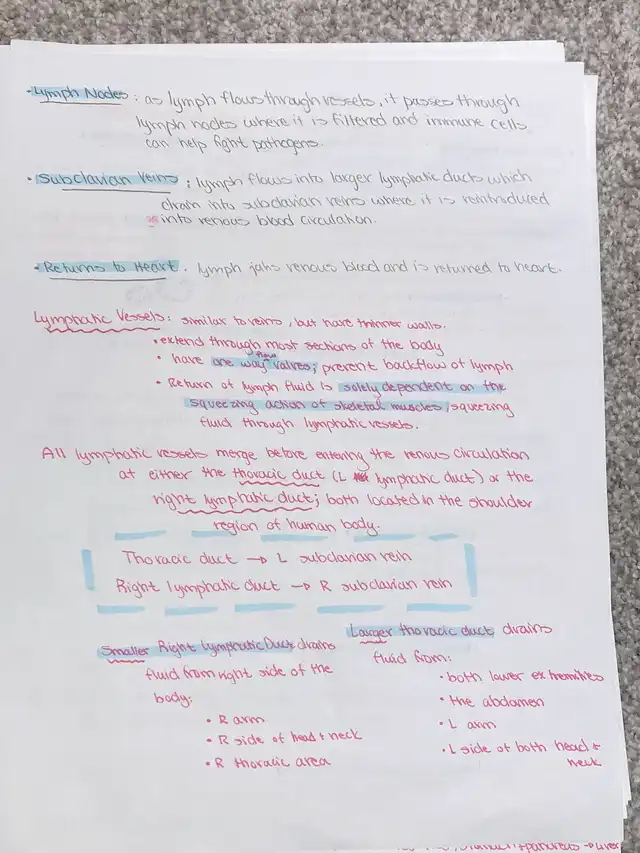 • Lymph Nodes : as lymph flows through vessels, it passes through
lymph nodes where it is filtered and immune cells
can help fight pathogens.
• Subclavian veins ; lymph flows into larger lymphatic ducts which
drain into subclavian veins where it is reintroduced
into venous blood circulation.
• Returns to Heart. lymph joins venous blood and is returned to heart.
Lymphatic Vessels: similar to veins, but have thinner walls.
• extend through most sections of the body
• have one way flow valves; prevent backflow of lymph
• Return of lymph fluid is solely dependent on the
squeezing action of skeletal muscles; squeezing
fluid through lymphatic vessels.
All lymphatic vessels merge before entering the venous circulation
at either the thoracic duct (L lymphatic duct) or the
right lymphatic duct; both located in the shoulder
region of human body.
Thoracic duct → L subclavian vein
Right lymphatic duct → R subclavian vein
Larger thoracic duct drains
fluid from:
• both lower extremities
• the abdomen
• L arm
• L side of both head +
neck
Smaller Right Lymphatic Duct drains
fluid from right side of the
body:
• R arm
• R side of head + neck
• R thoracic area
pancreas → liver